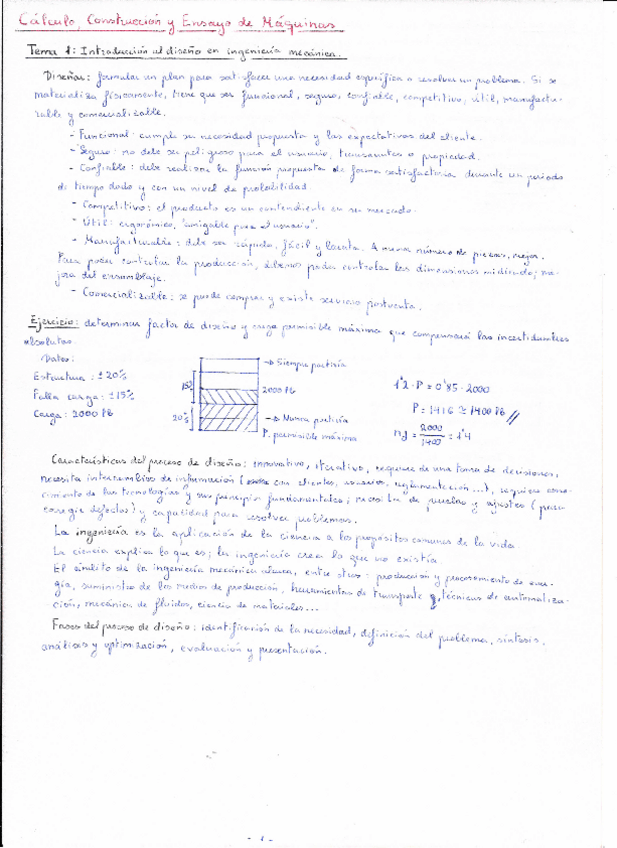 Cálculo, Construcción y Ensayo de Máquinas
Tema 1: Introducción al diseño en ingeniería mecánica.
Diseñar: formular un plan para satisfacer una necesidad específica o resolver un problema. Si se
materializa físicamente, tiene que ser funcional, seguro, confiable, competitivo, útil, manufactu-
rable y comercializable.
- Funcional: cumple su necesidad propuesta y las expectativas del cliente.
- Seguro: no debe ser peligroso para el usuario, transeuntes o propiedad.
- Confiable: debe realizar la función propuesta de forma satisfactoria durante un periodo
de tiempo dado y con un nivel de probabilidad
- Competitivo: el producto es un contendiente en su mercado.
- Útil: ergonómico, "amigable para el usuario".
- Manufacturable: debe ser rápido, fácil y barato. A menor número de piezas, mejor.
Para poder controlar la producción, debemos poder controlar las dimensiones midiendo; me-
jora del ensamblaje.
- Comercializable: se puede comprar y existe servicio postventa.
Ejercicio: determinar factor de diseño y carga permisible máxima que compensará las incertidumbres
absolutas.
Datos:
Estructura: ±20%
Falla carga: ±15%
Carga: 2000 lb
15%
20%
→ Siempre partiría
2000 lb
→ Nunca partiría
P. permisible máxima
1'2·P = 0'85·2000
P = 1416 ≅ 1400 lb //
nd = 2000/1400 = 1'4
Características del proceso de diseño: innovativo, iterativo, requiere de una toma de decisiones,
necesita intercambio de información (con clientes, usuarios, reglamentación...), requiere cono-
cimiento de las tecnologías y sus principios fundamentales; necesita de pruebas y ajustes (para
corregir defectos) y capacidad para resolver problemas.
La ingeniería es la aplicación de la ciencia a los propósitos comunes de la vida
La ciencia explica lo que es; la ingeniería crea lo que no existía
El ámbito de la ingeniería mecánica abarca, entre otros: producción y procesamiento de ener-
gía, suministro de los medios de producción, herramientas de transporte y técnicas de automatiza-
ción, mecánica de fluidos, ciencia de materiales...
Fases del proceso de diseño: identificación de la necesidad, definición del problema, síntesis,
análisis y optimización, evaluación y presentación.
- 1 -